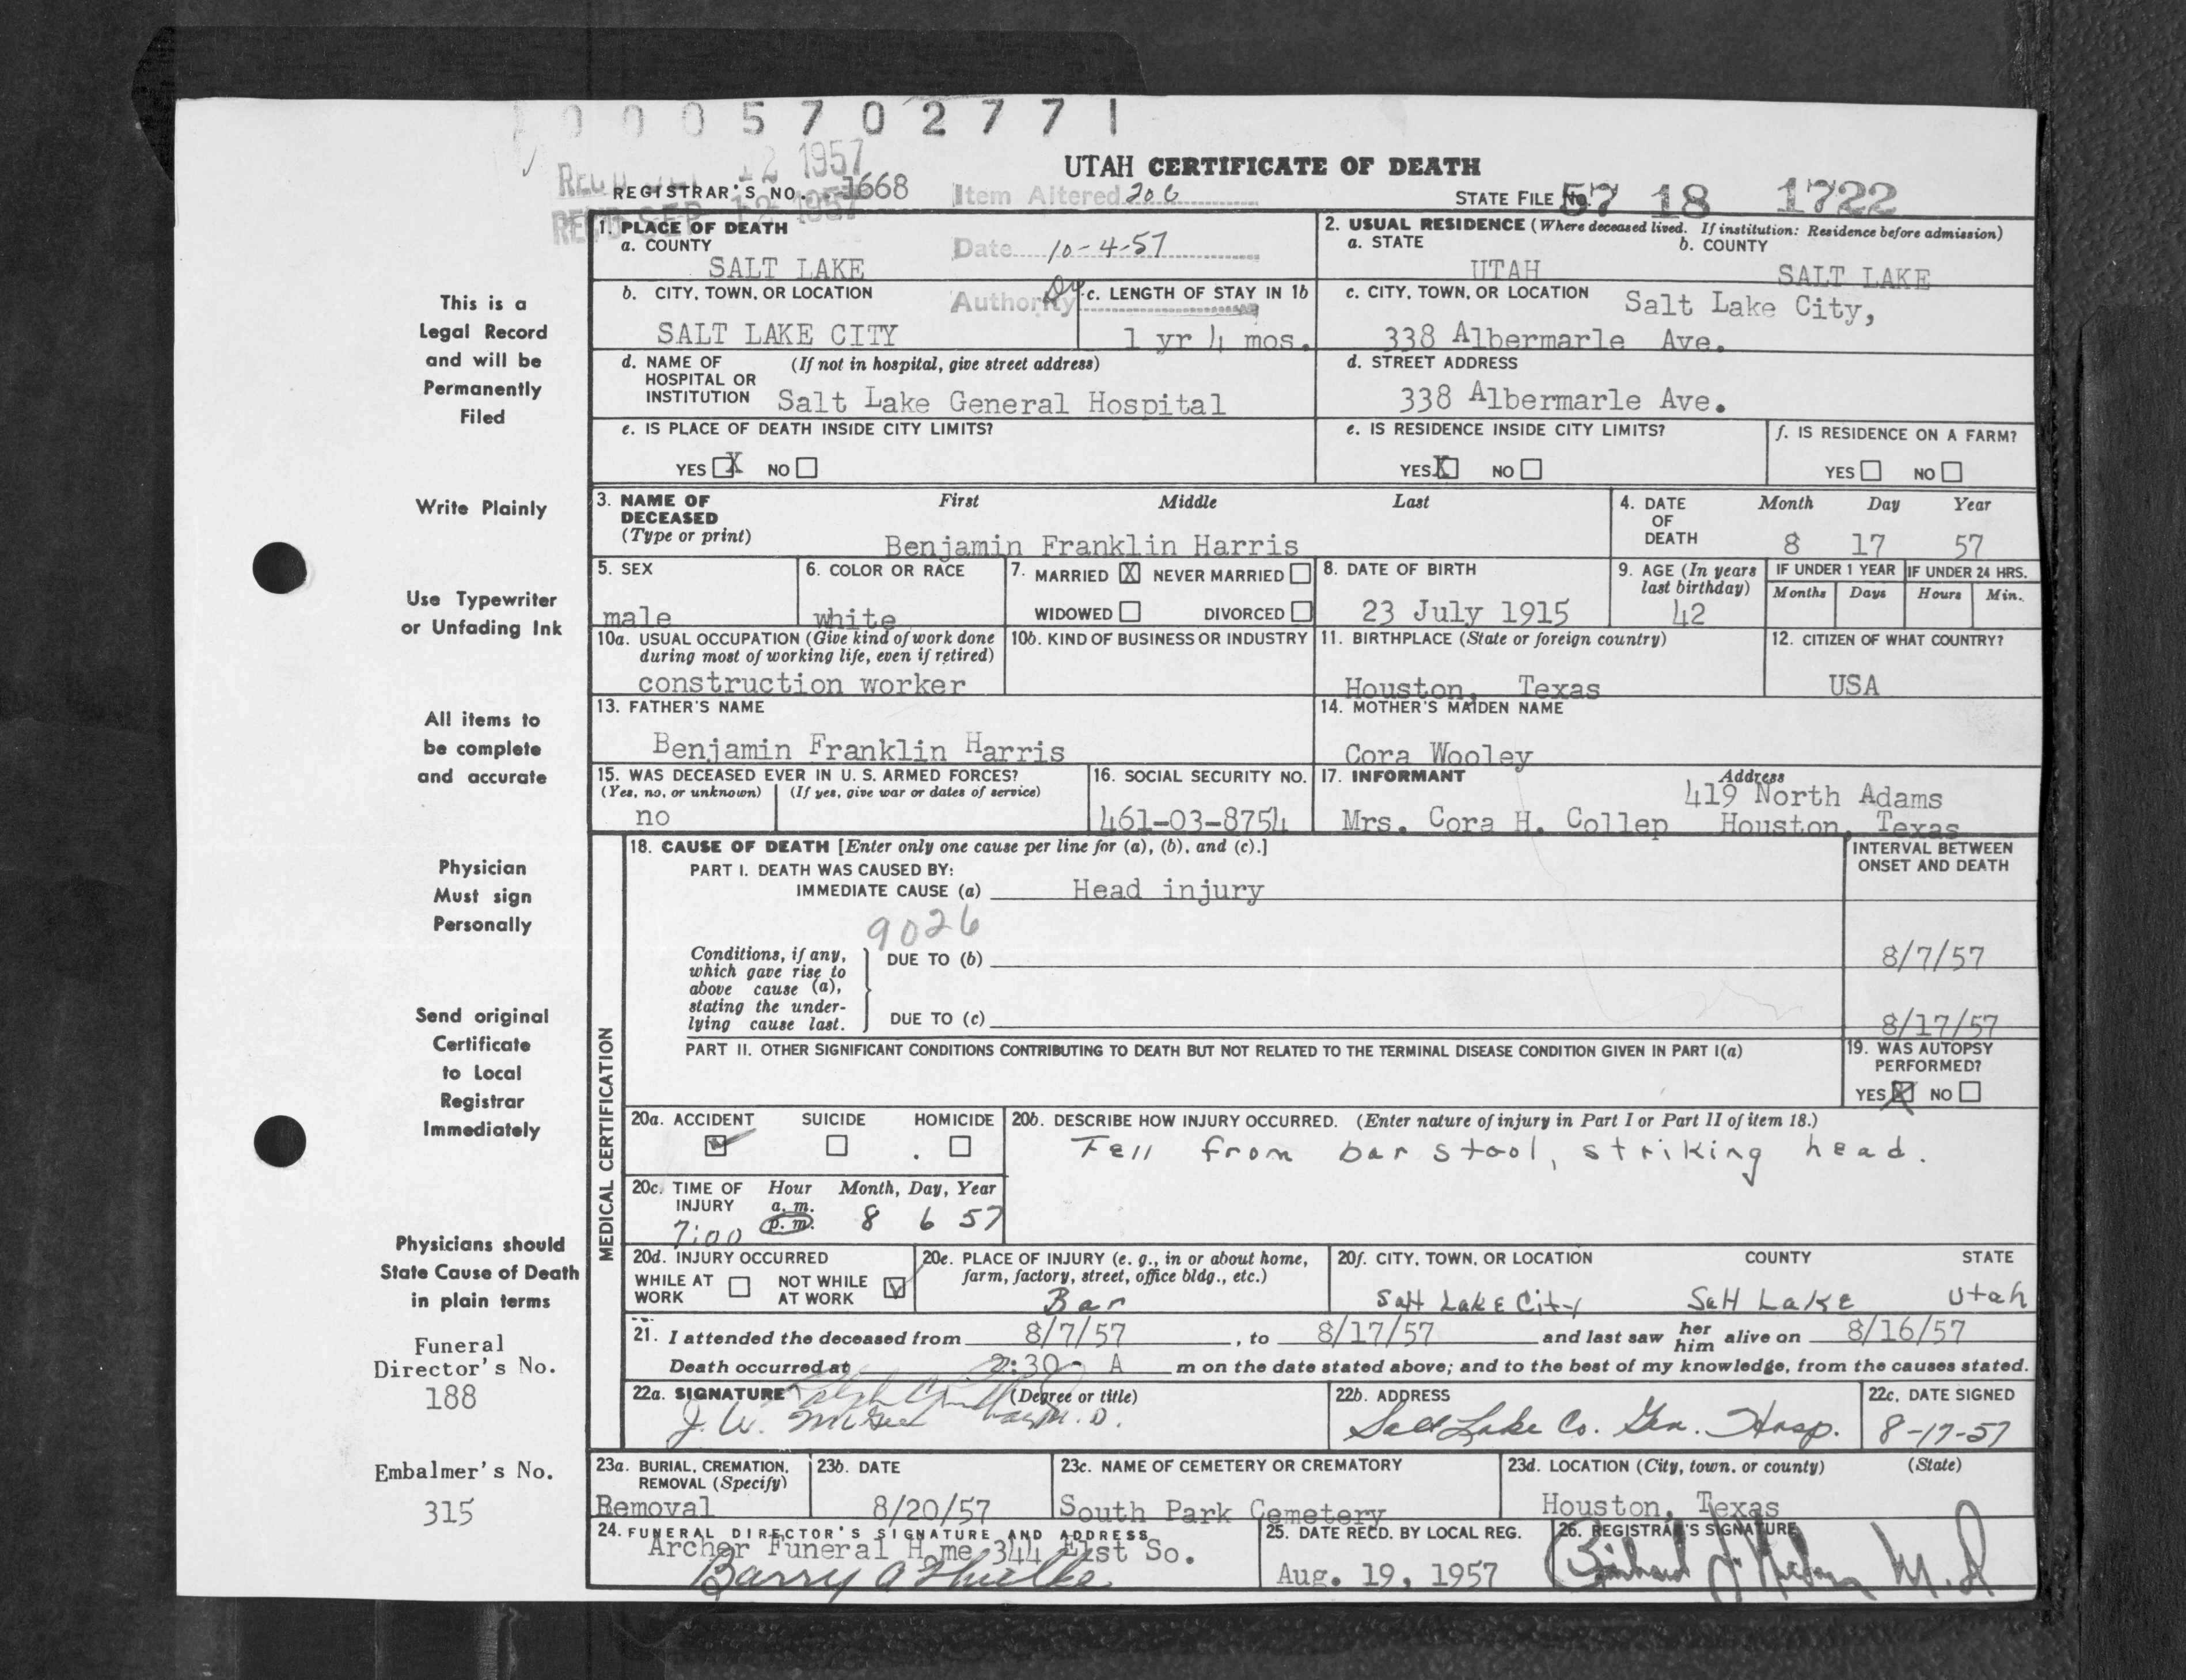 0005702771
REC'D SEP 12 1957
REC'D SEP 12 1957
UTAH CERTIFICATE OF DEATH
REGISTRAR'S NO. 1668
Item Altered 20b
STATE FILE No. 57 18 1722
Date 10-4-57
Authority
This is a
Legal Record
and will be
Permanently
Filed
Write Plainly
Use Typewriter
or Unfading Ink
All items to
be complete
and accurate
Physician
Must sign
Personally
Send original
Certificate
to Local
Registrar
Immediately
Physicians should
State Cause of Death
in plain terms
Funeral
Director's No.
188
Embalmer's No.
315
1. PLACE OF DEATH
a. COUNTY
SALT LAKE
2. USUAL RESIDENCE (Where deceased lived. If institution: Residence before admission)
a. STATE b. COUNTY
UTAH SALT LAKE
b. CITY, TOWN, OR LOCATION
SALT LAKE CITY
c. LENGTH OF STAY IN 1b
1 yr 4 mos.
c. CITY, TOWN, OR LOCATION Salt Lake City,
338 Albermarle Ave.
d. NAME OF (If not in hospital, give street address)
HOSPITAL OR
INSTITUTION Salt Lake General Hospital
d. STREET ADDRESS
338 Albermarle Ave.
e. IS PLACE OF DEATH INSIDE CITY LIMITS?
YES X NO
e. IS RESIDENCE INSIDE CITY LIMITS?
YES X NO
f. IS RESIDENCE ON A FARM?
YES NO
3. NAME OF First Middle Last
DECEASED
(Type or print) Benjamin Franklin Harris
4. DATE Month Day Year
OF
DEATH 8 17 57
5. SEX
male
6. COLOR OR RACE
white
7. MARRIED X NEVER MARRIED
WIDOWED DIVORCED
8. DATE OF BIRTH
23 July 1915
9. AGE (In years
last birthday)
42
IF UNDER 1 YEAR
Months Days
IF UNDER 24 HRS.
Hours Min.
10a. USUAL OCCUPATION (Give kind of work done
during most of working life, even if retired)
construction worker
10b. KIND OF BUSINESS OR INDUSTRY
11. BIRTHPLACE (State or foreign country)
Houston, Texas
12. CITIZEN OF WHAT COUNTRY?
USA
13. FATHER'S NAME
Benjamin Franklin Harris
14. MOTHER'S MAIDEN NAME
Cora Wooley
15. WAS DECEASED EVER IN U. S. ARMED FORCES?
(Yes, no, or unknown) (If yes, give war or dates of service)
no
16. SOCIAL SECURITY NO.
461-03-8754
17. INFORMANT Address
419 North Adams
Mrs. Cora H. Collep Houston, Texas
MEDICAL CERTIFICATION
18. CAUSE OF DEATH [Enter only one cause per line for (a), (b), and (c).]
PART I. DEATH WAS CAUSED BY:
IMMEDIATE CAUSE (a) Head injury
INTERVAL BETWEEN
ONSET AND DEATH
9026
Conditions, if any,
which gave rise to
above cause (a),
stating the under-
lying cause last.
DUE TO (b)
8/7/57
DUE TO (c)
8/17/57
PART II. OTHER SIGNIFICANT CONDITIONS CONTRIBUTING TO DEATH BUT NOT RELATED TO THE TERMINAL DISEASE CONDITION GIVEN IN PART I(a)
19. WAS AUTOPSY
PERFORMED?
YES X NO
20a. ACCIDENT SUICIDE HOMICIDE
20b. DESCRIBE HOW INJURY OCCURRED. (Enter nature of injury in Part I or Part II of item 18.)
Fell from bar stool, striking head.
20c. TIME OF Hour Month, Day, Year
INJURY a. m.
7:00 p. m. 8 6 57
20d. INJURY OCCURRED
WHILE AT WORK NOT WHILE AT WORK
20e. PLACE OF INJURY (e. g., in or about home,
farm, factory, street, office bldg., etc.)
Bar
20f. CITY, TOWN, OR LOCATION COUNTY STATE
Salt Lake City Salt Lake Utah
21. I attended the deceased from 8/7/57, to 8/17/57 and last saw her him alive on 8/16/57
Death occurred at 2:30 A m on the date stated above; and to the best of my knowledge, from the causes stated.
22a. SIGNATURE (Degree or title)
J. W. McGee M.D.
22b. ADDRESS
Salt Lake Co. Gen. Hosp.
22c. DATE SIGNED
8-17-57
23a. BURIAL, CREMATION,
REMOVAL (Specify)
Removal
23b. DATE
8/20/57
23c. NAME OF CEMETERY OR CREMATORY
South Park Cemetery
23d. LOCATION (City, town, or county) (State)
Houston, Texas
24. FUNERAL DIRECTOR'S SIGNATURE AND ADDRESS
Archer Funeral Home 344 East So.
Barry
25. DATE RECD. BY LOCAL REG.
Aug. 19, 1957
26. REGISTRAR'S SIGNATURE
M.D.